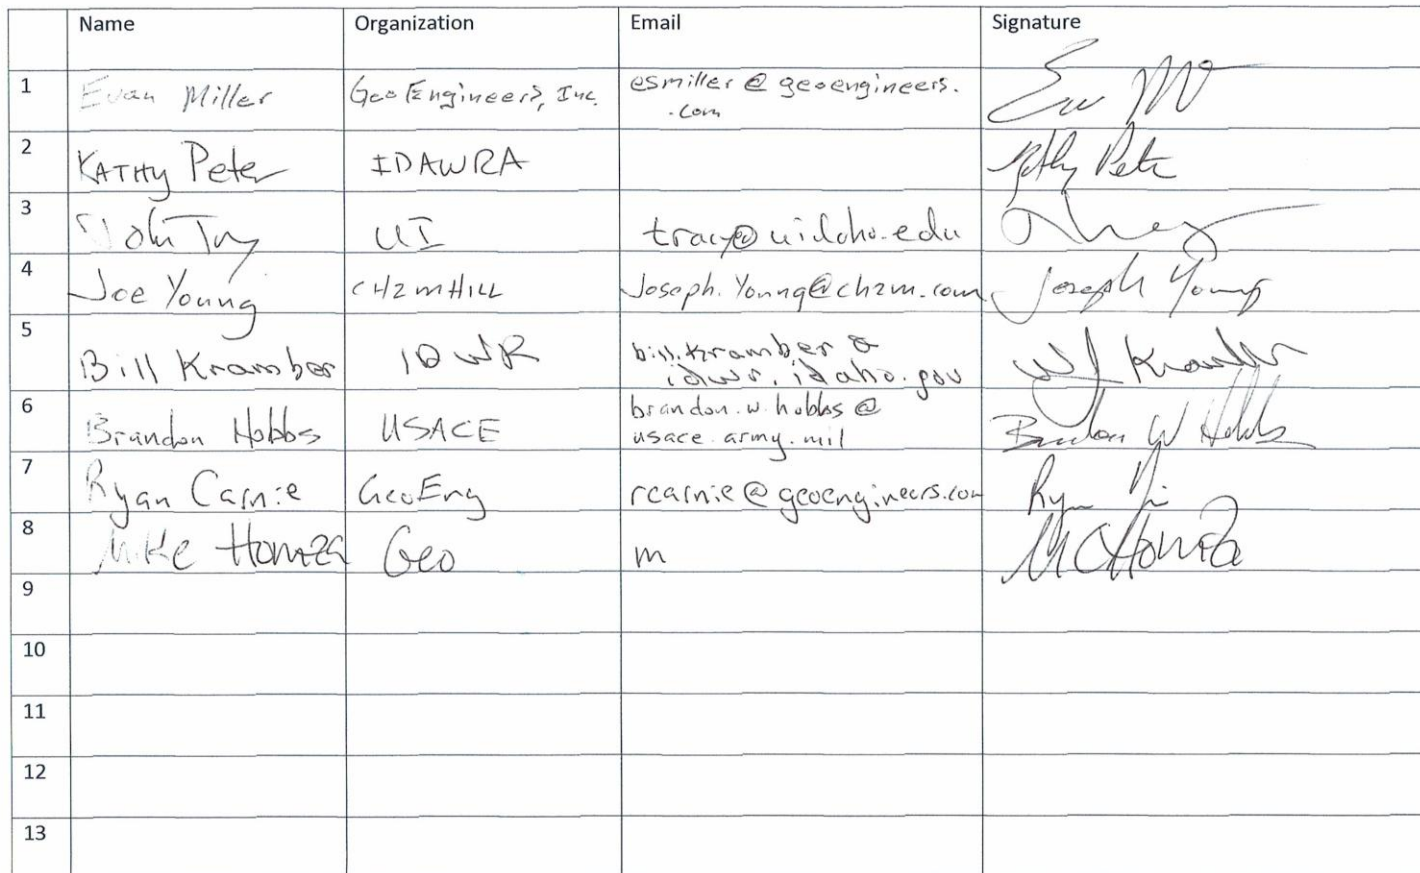 Name Organization Email Signature
1 Evan Miller GeoEngineers, Inc. esmiller@geoengineers.
.com
2 KATHy Peter IDAWRA Kathy Peter
3 John UI tracy@uidaho.edu
4 Joe Young CH2MHILL Joseph.Young@ch2m.com Joseph Young
5 Bill Kramber IDWR bill.kramber@
idwr.idaho.gov
6 Brandon Hobbs USACE brandon.w.hobbs@
usace.army.mil Brandon W Hobbs
7 Ryan Carnie GeoEng rcarnie@geoengineers.com
8 Mike Homza Geo m MCHomza
9
10
11
12
13